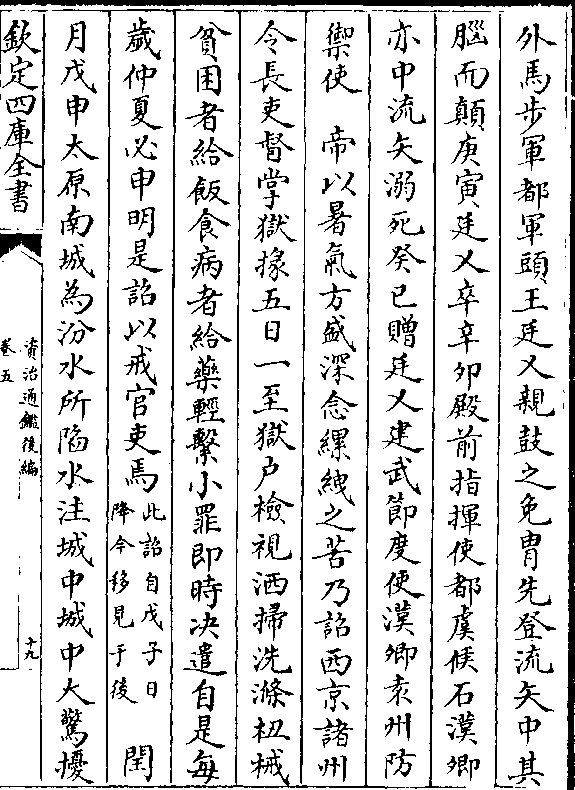 外馬步軍都軍頭王廷乂親鼓之免胄先登流矢中其
腦而顛庚寅廷乂卒辛卯殿前指揮使都虞候石漢卿
亦中流矢溺死癸巳贈廷乂建武節度使漢卿袁州防
禦使　帝以暑氣方盛深念縲絏之苦乃詔西京諸州
令長吏督掌獄掾五日一至獄户檢視洒掃洗滌杻械
貧困者給飯食病者給藥輕繫小罪即時決遣自是每
歲仲夏必申明是詔以戒官吏焉此詔自戊子日降今移見于後　閏
月戊申太原南城為汾水所陷水注城中城中大驚擾
欽定四庫全書
資治通鑑後編
卷五
十九